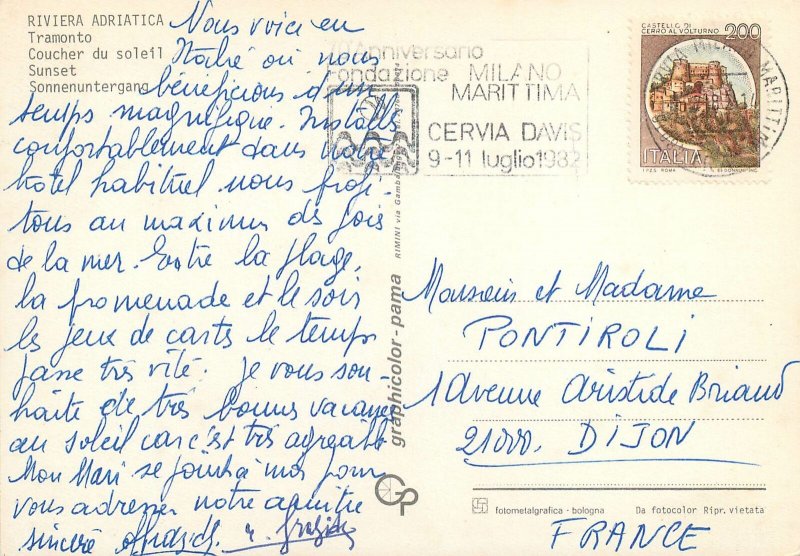 RIVIERA ADRIATICA
Tramonto
Coucher du soleil
Sunset
Sonnenuntergang
Nous voici en
Italie où nous
bénéficions d'un
temps magnifique. Installés
confortablement dans notre
hôtel habituel nous profi-
tons au maximum des joies
de la mer. Entre la plage,
la promenade et le soir
les jeux de carte le temps
passe très vite. Je vous sou-
haite de très bonnes vacances
au soleil car c'est très agréable
Mon Mari se joint à moi pour
vous adresser notre amitié
sincère
graphicolor - pama
RIMINI via
Anniversario
Fondazione MILANO
MARITTIMA
CERVIA DAVIS
9-11 luglio 1982
CASTELLO DI
CERRO AL VOLTURNO 200
ITALIA
I.P.Z.S. ROMA
CERVIA MILANO MARITTIMA
Monsieur et Madame
PONTIROLI
1 Avenue Aristide Briand
21000. DIJON
GP
fotometalgrafica - bologna Da fotocolor Ripr. vietata
FRANCE